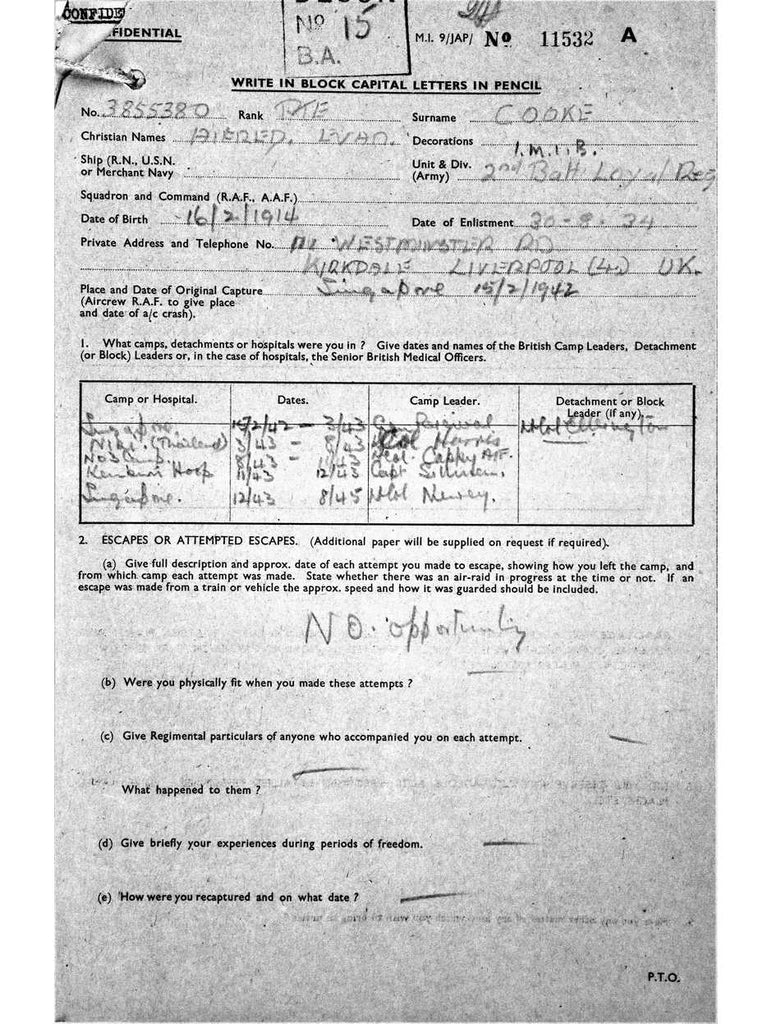 CONFIDE
FIDENTIAL
No 15
B.A.
M.I. 9/JAP/ No 11532 A
WRITE IN BLOCK CAPITAL LETTERS IN PENCIL
No. 3855380 Rank PTE Surname COOKE
Christian Names ALFRED. EVAN. Decorations I.M.I.B.
Ship (R.N., U.S.N. or Merchant Navy Unit & Div. (Army) 2nd Batt Loyal Reg
Squadron and Command (R.A.F., A.A.F.)
Date of Birth 16/2/1914 Date of Enlistment 30-8-34
Private Address and Telephone No. WESTMINSTER RD
KIRKDALE LIVERPOOL (4) UK.
Place and Date of Original Capture Singapore 15/2/1942
(Aircrew R.A.F. to give place
and date of a/c crash).
1. What camps, detachments or hospitals were you in ? Give dates and names of the British Camp Leaders, Detachment
(or Block) Leaders or, in the case of hospitals, the Senior British Medical Officers.
Camp or Hospital. Dates. Camp Leader. Detachment or Block
Leader (if any).
Singapore. 15/2/42 – 3/43 Percival
(Thailand) 3/43 – 8/43 Col Harris
No3 Camp. 8/43 – 11/43 Cappy AIF.
Hosp 11/43 12/43 Capt
Singapore. 12/43 8/45 Newey.
2. ESCAPES OR ATTEMPTED ESCAPES. (Additional paper will be supplied on request if required).
(a) Give full description and approx. date of each attempt you made to escape, showing how you left the camp, and
from which camp each attempt was made. State whether there was an air-raid in progress at the time or not. If an
escape was made from a train or vehicle the approx. speed and how it was guarded should be included.
NO. opportunity
(b) Were you physically fit when you made these attempts ?
(c) Give Regimental particulars of anyone who accompanied you on each attempt.
What happened to them ?
(d) Give briefly your experiences during periods of freedom.
(e) How were you recaptured and on what date ?
P.T.O.